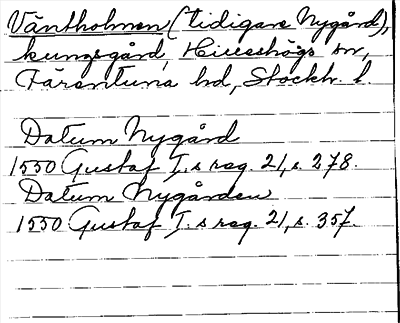 Väntholmen (tidigare Nygård),
kungsgård, Hilleshögs sn,
Färentuna hd, Stockh. l.
Datum Nygård
1550 Gustaf I.s reg. 21, s. 278.
Datum Nygården
1550 Gustaf I.s reg. 21, s. 357.